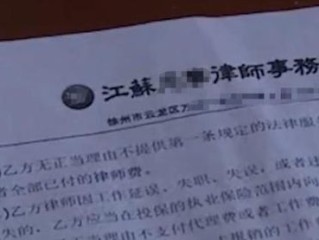 江蘇 律師事務
徐州市云龙区万
)乙方无正当理由不提供第一条规定的法律服
者全部已付的律师费。
)乙方律师因工作延误、失职、失误，或者违
失的，乙方应当在投保的执业保险范围内向
理由不支付代理费或者工作费